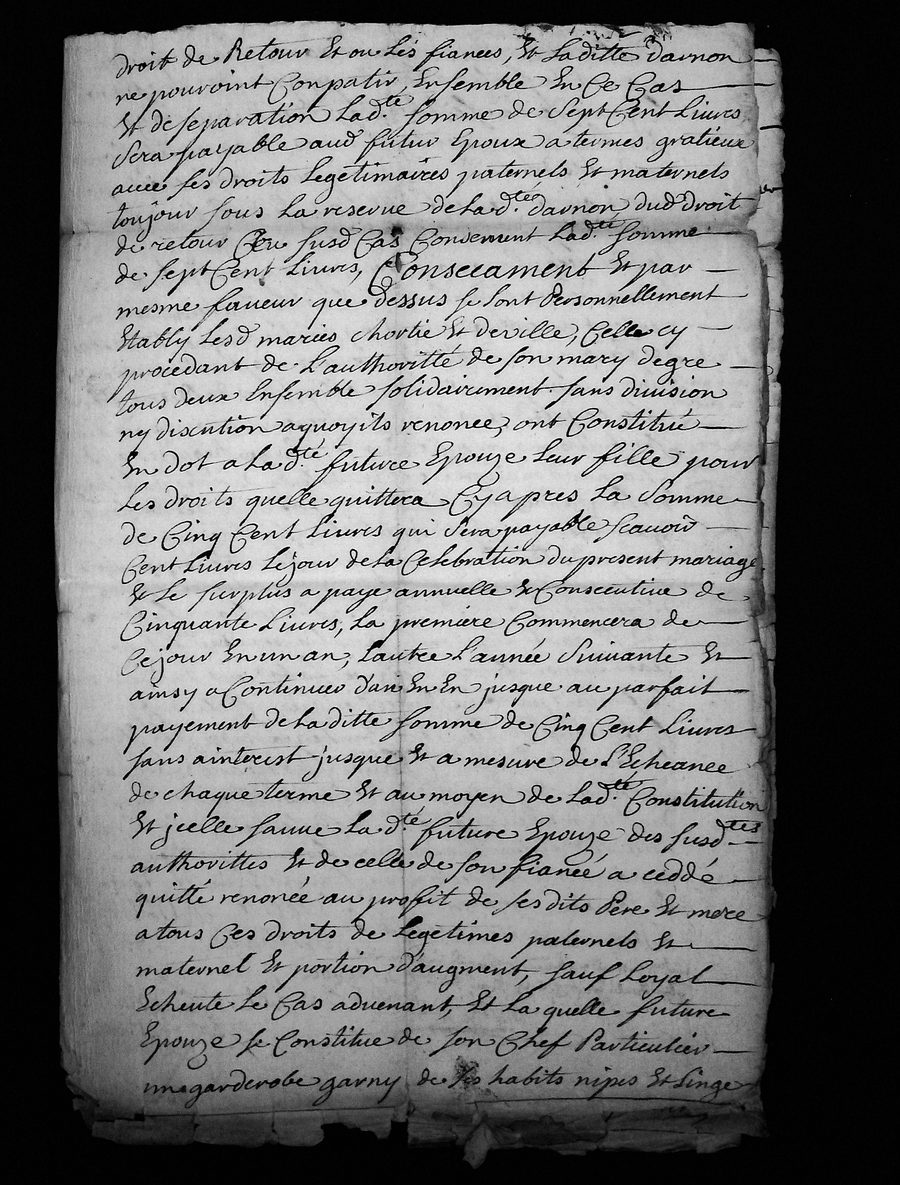 droit de Retour Et ou les fiancés, Et laditte darnon
ne pouroint Conpatir Ensemble En Ce Cas
Et de separation Lad.te somme de sept Cent Livres
sera payable aud futur Epoux a termes gratieux
avec ses droits Legetimaires paternels Et maternels
toujour sous La reserve de la d.te darnon dud droit
de retour susd Cas Consernent Lad.te somme
de sept Cent Livres, Consecament Et par
mesme faveur que dessus se sont Personnellement
Etably Lesd maries chortie Et deville, Celle cy
procedant de L'authoritté de son mary degre
tous deux Ensemble solidairement sans division
ny discution aquoy ils renonce, ont Constitué
En dot a la d.te future Epouze Leur fille pour
Les droits quelle quittera Cy apres La somme
de Cinq Cent Livres qui sera payable scavoir
Cent Livres Le jour de la Celebration du present mariage
Et le surplus a paye annuelle & Consecutive de
Cinquante Livres, La premiere Commencera de
Ce jour En un an, Lautre L'année suivante Et
ainsy a Continuer d'an En En jusque au parfait
payement de laditte somme de Cinq Cent Livres
sans ainterest jusque Et a mesure de L'Echeance
de chaque terme Et au moyen de lad.te Constitution
Et jcelle sauve La d.te future Epouze des susd.tes
authorittes Et de celle de son fiancé a ceddé
quitté renoncé au profit de sesdits Pere Et mere
a tous Ces droits de Legetimes paternels Et
maternel Et portion d'augment, sauf Loyal
Echeute le Cas advenant, Et La quelle future
Epouze se Constitue de son Chef Particulier
une garderobe garny de ses habits nipes Et Linge